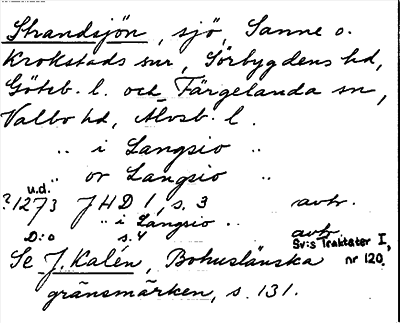 Strandsjön, sjö, Sanne o.
Krokstads snr, Sörbygdens hd,
Göteb. l. och Färgelanda sn,
Valbo hd, Älvsb. l.
" i Langsio "
" or Langsio "
u.d.
?1273 JHD 1, s. 3 avtr.
" i Langsio "
D:o s. 4 avtr.
Sv:s Traktater I,
Se J. Kalén, Bohuslänska nr 120.
gränsmärken, s. 131.